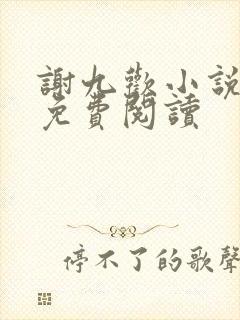 謝九歡小說
免費閱讀
停不了的歌聲